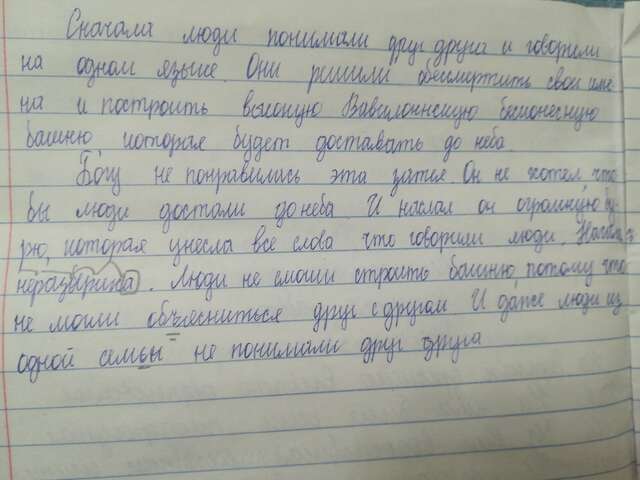 Сначала люди понимали друг друга и говорили
на одном языке. Они решили обесмертить свои име
на и построить высокую Вавилонскую башню
башню, которая будет доставать до неба.
Богу не понравилась эта затея. Он не хотел, что
бы люди достали до неба. И наслал он огромную бу
рю, которая унесла все слова что говорили люди. Начала
неразбериха. Люди не смогли строить башню, потому что
не могли объяснится друг с другом. И даже люди из
одной семьи не понимали друг друга